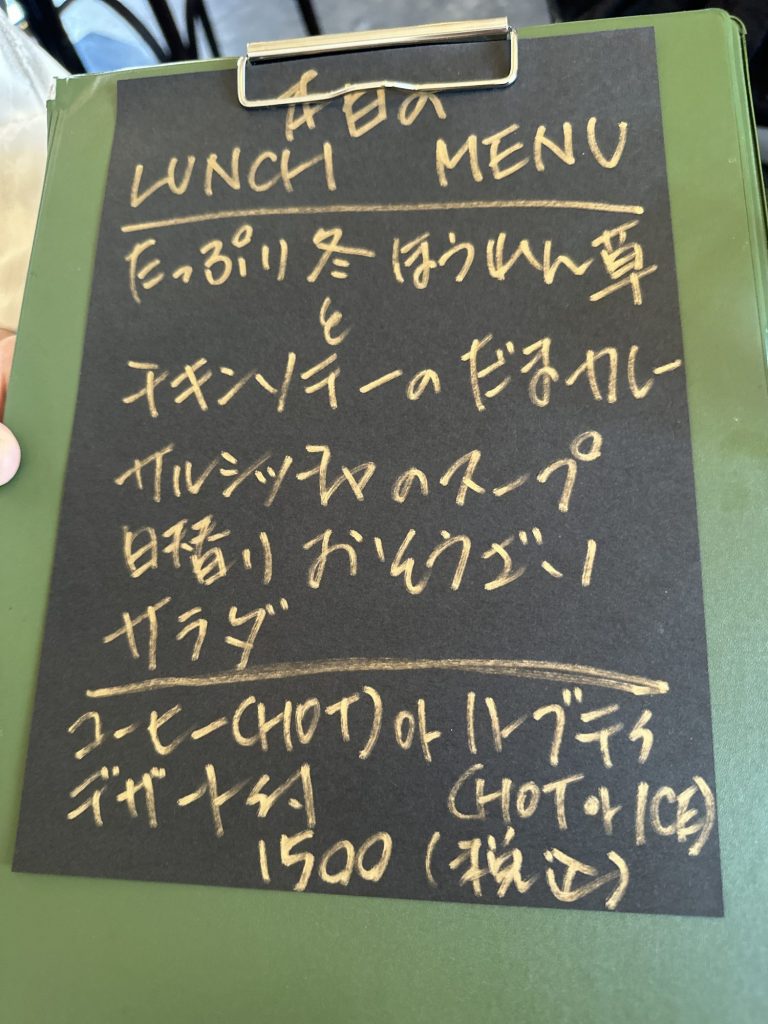 本日の
LUNCH MENU
たっぷり冬ほうれん草
と
チキンソテーのだまカレー
サルシッチャのスープ
日替りおそうざい
サラダ
コーヒー(HOT) or ハーブティ
デザート付 (HOT or ICE)
1500(税込)